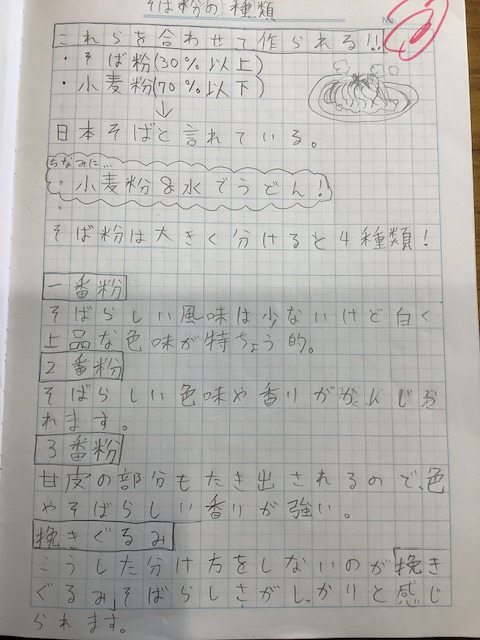 そば粉の種類
No.
これらを合わせて作られる!!
・そば粉(30%以上)
・小麦粉(70%以下)
↓
日本そばと言れている。
ちなみに…
小麦粉&水でうどん!
そば粉は大きく分けると4種類!
一番粉
そばらしい風味は少ないけど白く
上品な色味が特ちょう的。
2番粉
そばらしい色味や香りがかんじら
れます。
3番粉
甘皮の部分もたき出されるので、色
やそばらしい香りが強い。
挽きぐるみ
こうした分け方をしないのが「挽き
ぐるみ」そばらしさがしっかりと感じ
られます。